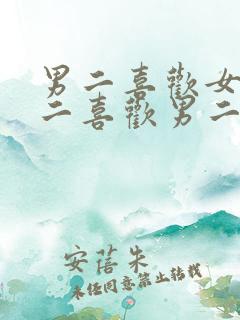 男二喜歡女
二喜歡男二
安蓓朱
未经同意禁止转载